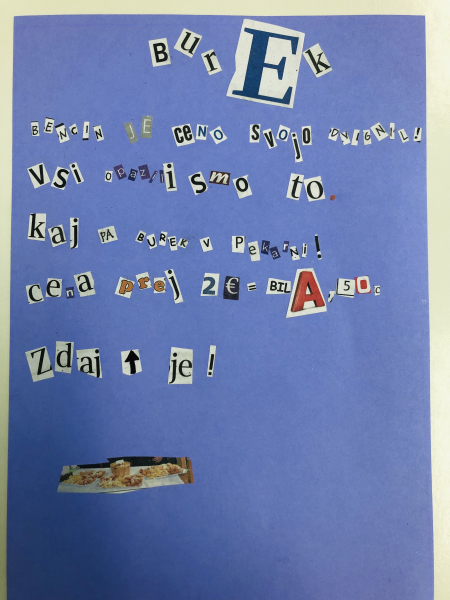 BurEk
BENCIN JE CENO SVOJO DVIGNIL!
Vsi opazili smo to.
kaj PA BUREK V PeKaRNi!
cena prej 2€ = BILA,50c
Zdaj ↑ je!